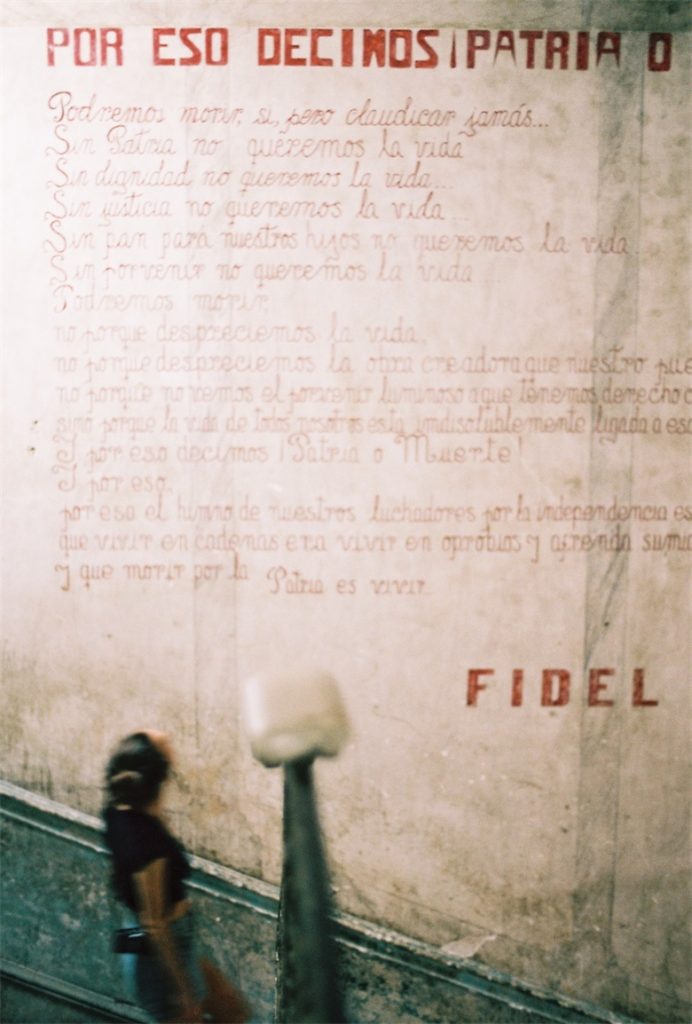 POR ESO DECIMOS ¡PATRIA O
Podremos morir, si, pero claudicar jamás...
Sin Patria no queremos la vida
Sin dignidad no queremos la vida...
Sin justicia no queremos la vida...
Sin pan para nuestros hijos no queremos la vida
Sin porvenir no queremos la vida
Podremos morir,
no porque despreciemos la vida,
no porque despreciemos la obra creadora que nuestro pue
no porque no vemos el porvenir luminoso a que tenemos derecho c
sino porque la vida de todos nosotros esta indisolublemente ligada a esa
Y por eso decimos ¡Patria o Muerte!
Y por eso,
por eso el himno de nuestros luchadores por la independencia es
que vivir en cadenas era vivir en oprobios y afrenda sumi
y que morir por la Patria es vivir
FIDEL